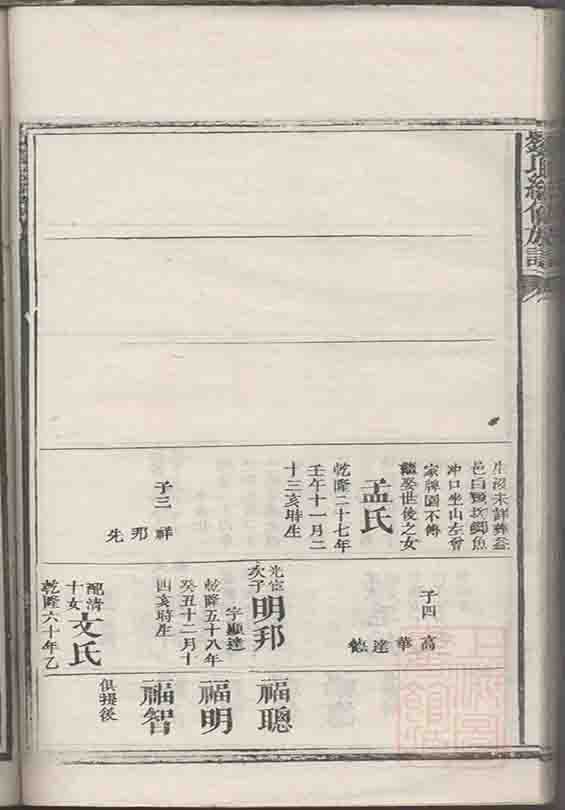 氏續修族譜
生沒未詳葬益
邑白
魚
冲口坐山左曾
家牌圖不傳
繼娶世俊之女
孟氏
乾隆二十七年
壬午十一月二
十三亥時生
子三
祥
邦
先
子四
高
華
達
德
光宦
次子
明邦
字顯達
乾隆五十八年
癸丑十二月十
四亥時生
配清
十女
文氏
乾隆六十年乙
福聰
福明
福智
俱提後